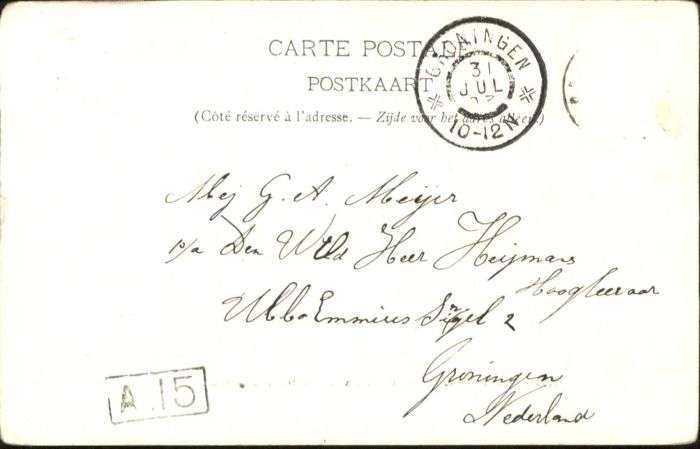 CARTE POSTALE
POSTKAART
(Côté réservé à l'adresse. — Zijde voor het adres alleen.)
GRONINGEN
31
JUL
10-12N
Mej G. A. Meijer
p/a Den Wld Heer Heijmans
Hoogleeraar
Ubbo Emmius Singel 2
Groningen
Nederland
A 15